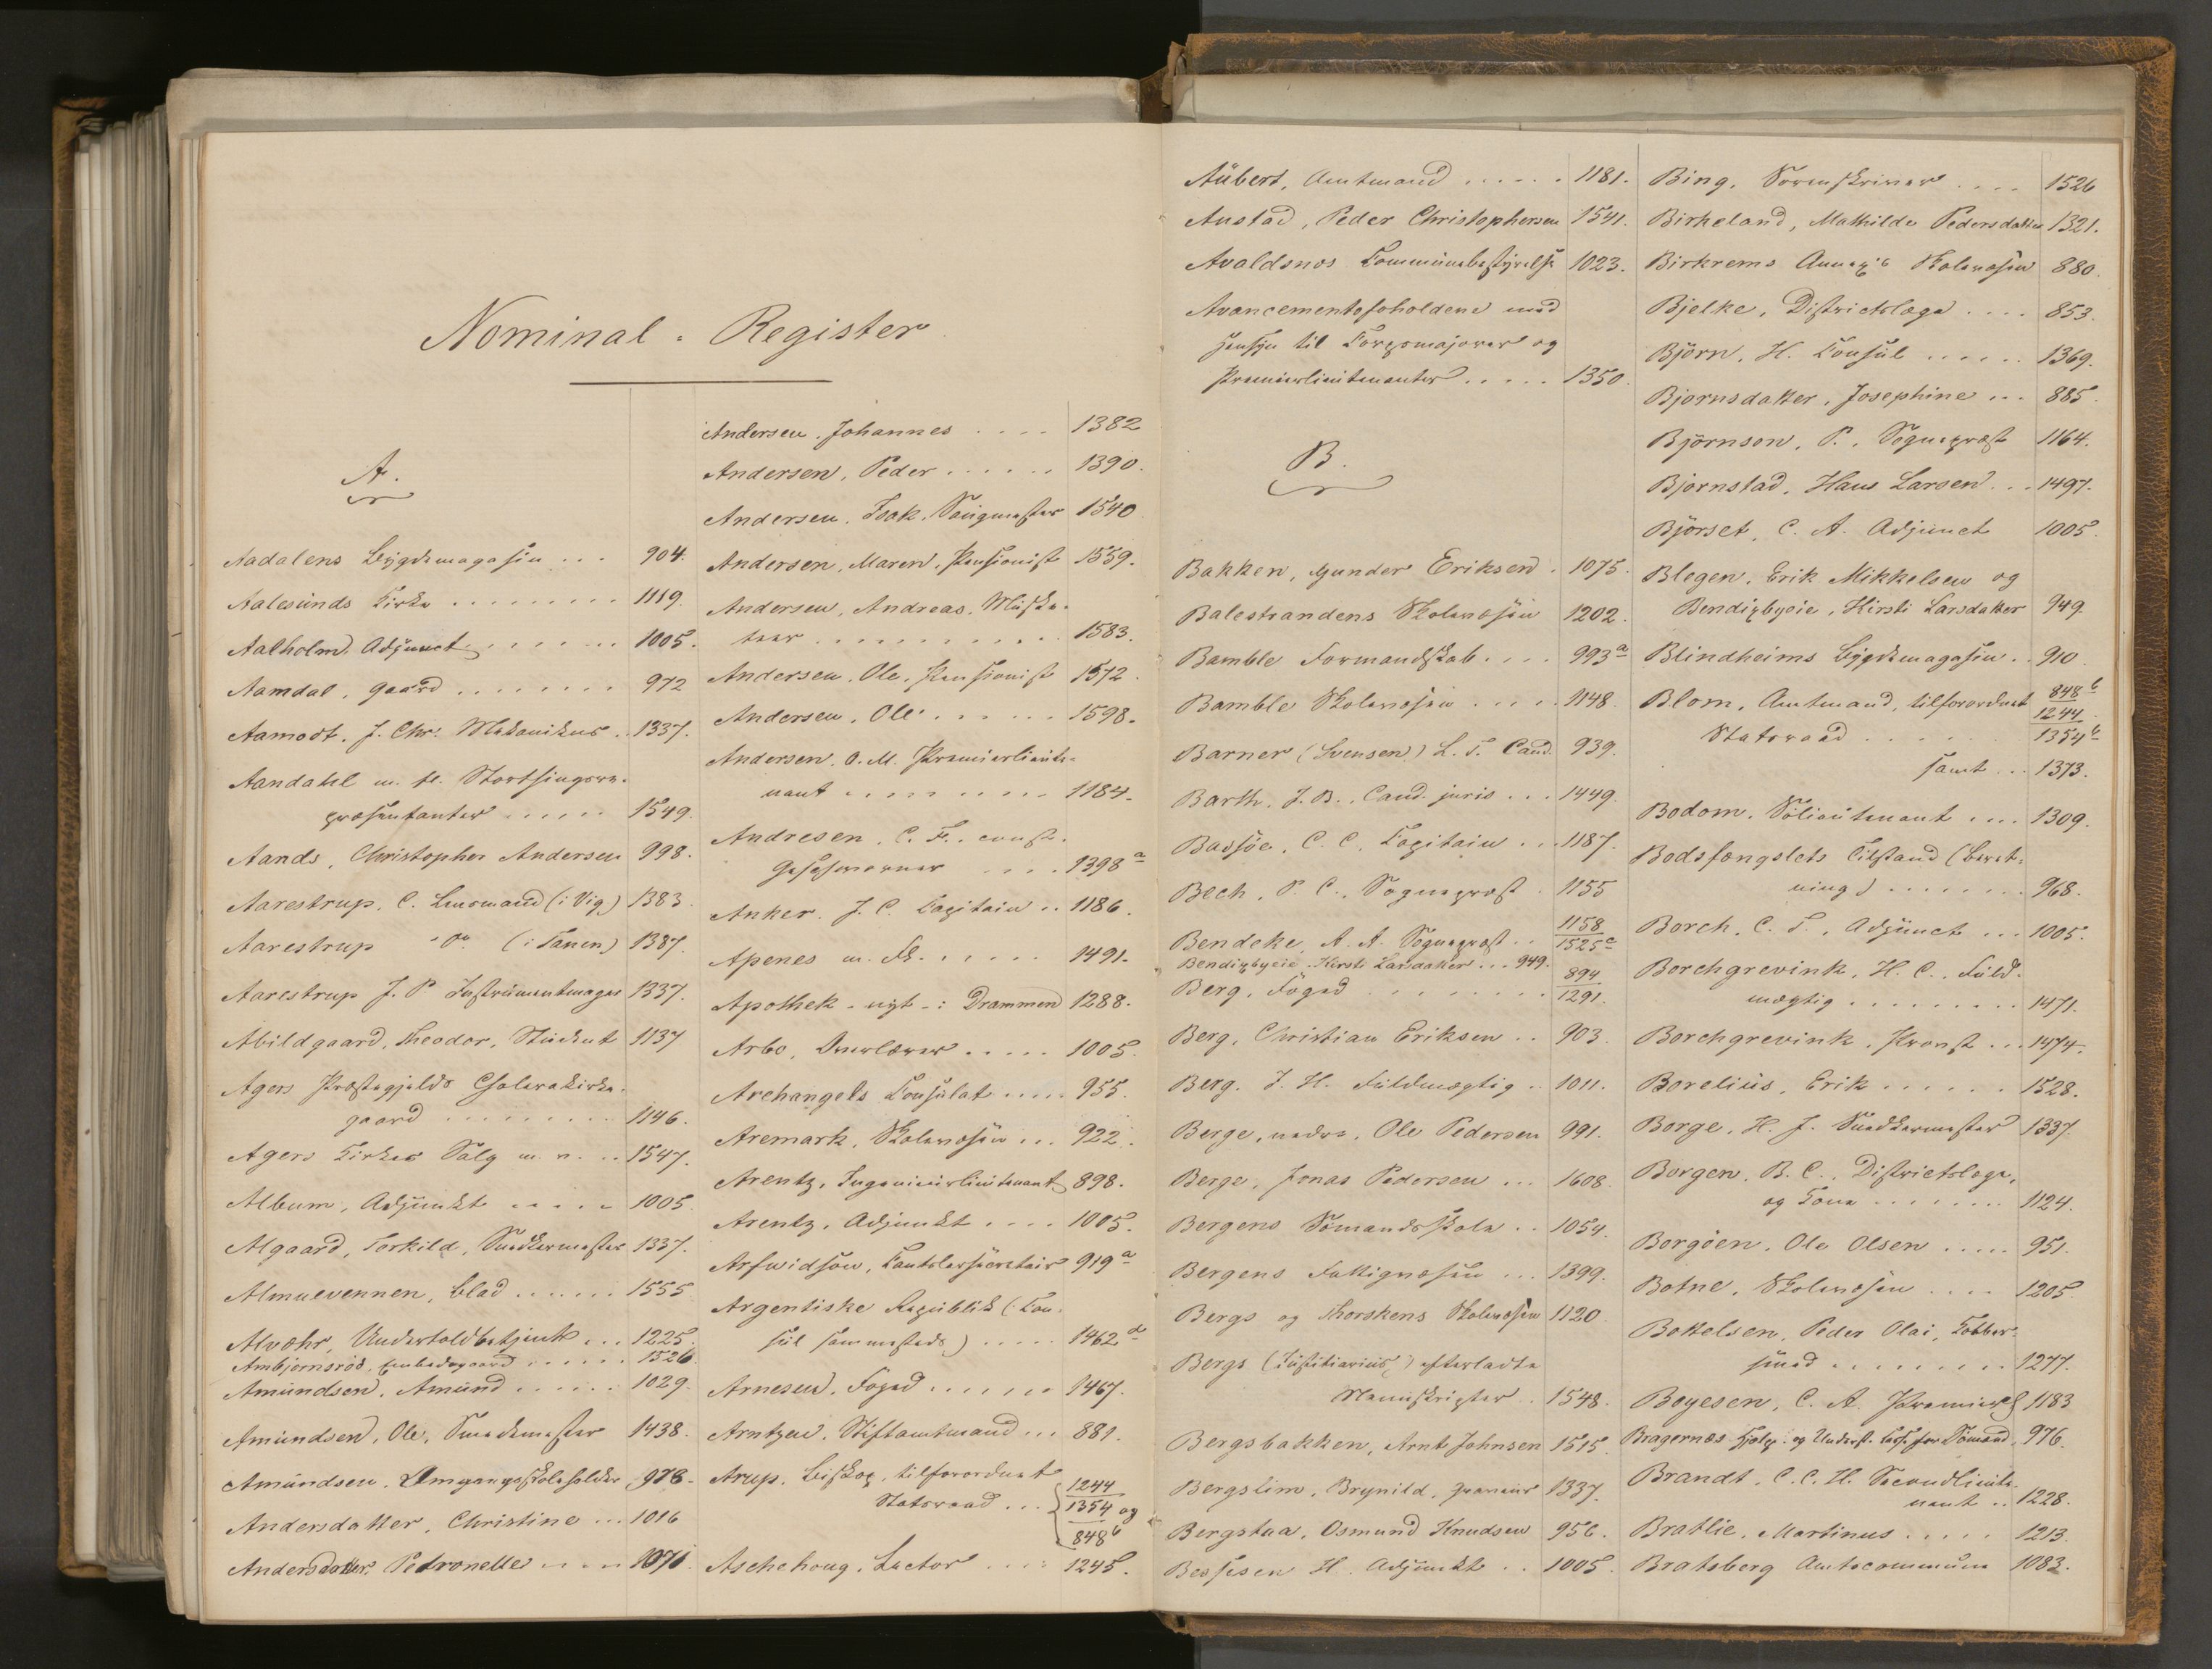 Nominal-Register
A.
Aadalens Bygdemagasin ... 904.
Aalesunds Kirke ......... 1119.
Aalholm, Adjunct ...... 1005.
Aamdal, gaard ........ 972
Aamodt, J. Chr. Mekanikus .. 1337.
Aandahl m. fl. Storthingsre-
præsentanter ..... 1549.
Aands, Christopher Andersen 998.
Aarestrup, C. Lensmand (i Vig.) 1383.
Aarestrup " Do (i Fanen) 1387.
Aarestrup J. P. Instrumentmager 1337.
Abildgaard, Theodor, Student 1137
Agers Præstegjelds Cholerakirke-
gaard ......... 1146.
Agers Kirkes Salg m. v. .. 1547.
Album, Adjunkt ..... 1005.
Algaard, Torkild, Snedkermester 1337.
Almuevennen, Blad ...... 1555
Alvæhr, Undertoldbetjent ... 1225.
Ambjørnsrød, Embedsgaard ...... 1526.
Amundsen, Amund ...... 1029.
Amundsen, Ole, Smedemester 1438.
Amundsen, Omgangsskoleholder 978.
Andersdatter, Christine ... 1016
Andersdatter, Petronelle .... 1071.
Andersen, Johannes .... 1382
Andersen, Peder ...... 1390.
Andersen, Isak, Saugmester 1540.
Andersen, Maren, Pensionist 1559.
Andersen, Andreas, Muske-
teer .......... 1583.
Andersen, Ole, Pensionist 1572.
Andersen, Ole ...... 1598.
Andersen, O. M. Premierlieute-
nant ......... 1184.
Andresen, C. F., const.
Geschworner .... 1398 a
Anker, J. C. Capitain .. 1186.
Apenes m. Fl. ..... 1491.
Apothek - nyt - i Drammen 1288.
Arbo, Overlærer ..... 1005.
Archangels Consulat ..... 955.
Aremark, Skolevæsen ... 922.
Arentz, Ingenieurlieutenant 898.
Arentz, Adjunkt .... 1005.
Arfwidson, Cantslersecretair 919 a
Argentiske Republik (Con-
sul sammesteds) ..... 1462 a
Arnesen, Foged ...... 1467.
Arntzen, Stiftamtmand ... 881.
Arup, Biskop, tilforordnet
Statsraad ... 1244
1354 og
848 b
Aschehoug, Lector .... 1245.
Aubert, Amtmand ..... 1181.
Austad, Peder Christophersen 1541.
Avaldsnes Communebestyrelse 1023.
Avancementsforholdene med
Hensyn til Corpsmajorer og
Premierlieutenanter ..... 1350.
B.
Bakken, Gunder Eriksen . 1075.
Balestrandens Skolevæsen 1202.
Bamble Formandskab .... 993 a
Bamble Skolevæsen .... 1148.
Barner (Svensen) L. T. Cand. 939.
Barth, J. B., Cand. juris ... 1449.
Bassøe, C. C. Capitain ... 1187.
Bech, P. C., Sognepræst . 1155
Bendeke, A. A. Sognepræst .. 1158
1525 c
Bendixbyeie, Kirsti Larsdatter ... 949.
Berg, Foged ......... 894
1291.
Berg, Christian Eriksen .. 903.
Berg, J. H. Fuldmægtig .. 1011.
Berge, nedre, Ole Pedersen 991.
Berge, Jonas Pedersen ... 1608.
Bergens Sömandsskole .. 1054.
Bergens Fattigvæsen ... 1399.
Bergs og Thorskens Skolevæsen 1120.
Bergs (Justitiarius,) efterladte
Manuskripter . 1548.
Bergsbakken, Arnt Johnsen 1515.
Bergslim, Brynild, graveur 1337.
Bergstua, Osmund Knudsen 956.
Bessesen H. Adjunkt .. 1005.
Bing, Sorenskriver .... 1526
Birkeland, Mathilde Pedersdatter 1321.
Birkrems Annex's Skolevæsen 880.
Bjelke, Districtslæge .... 853.
Björn, H. Consul ..... 1369.
Bjornsdatter, Josephine ... 885.
Björnson, P., Sognepræst 1164.
Bjørnstad, Hans Larsen ... 1497.
Björset, C. A. Adjunct 1005.
Blegen, Erik Mikkelsen og
Bendixbyeie, Kirsti Larsdatter 949.
Blindheims Bygdemagasin .. 910.
Blom, Amtmand, tilforordnet 848 b
1244.
Statsraad ...... 1354 b
samt ... 1373.
Bodom, Sölieutenant .... 1309.
Bodsfængslets Tilstand (beret-
ning) ........ 968.
Borch, C. T., Adjunct ... 1005.
Borchgrevink, H. C., Fuld-
mægtig ......... 1471.
Borchgrevink, Provst ... 1474.
Borelius, Erik ...... 1528.
Borge, H. J. Snedkermester 1337.
Borgen, B. C., Districtslæge,
og Cone ........ 1124.
Borgöen, Ole Olsen ..... 951.
Botne, Skolevæsen .... 1205
Bottelsen, Peder Olai, Kobber-
smed ......... 1277.
Boyesen, C. A. Premierl. 1183
Bragernæs Hjælpe- og Underst. Casse for Sömænd, 976.
Brandt, C. C. H. Secondlieute-
nant .. 1228.
Bratlie, Martinus ..... 1213.
Bratsberg Amtscommune 1083.